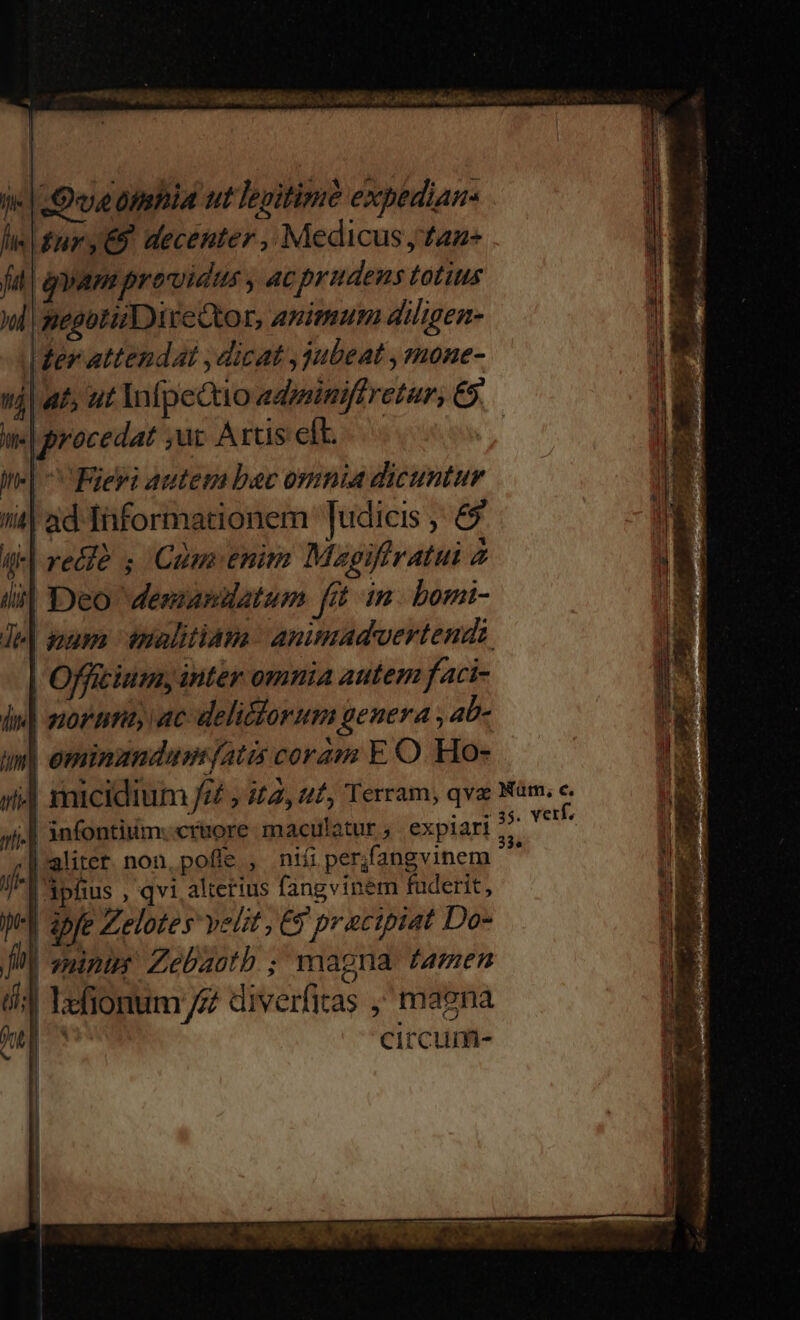 Qvæ omnia ut legitimè expedian-
tur, & decenter, Medicus, tan-
qvam providus, ac prudens totius
negotii Director, animum diligen-
ter attendat, dicat, jubeat, mone-
at, ut Inſpectio adminiſtretur, &
procedat, ut Artis eſt.
Fieri autem hæc omnia dicuntur
ad Informationem Judicis, &
rectè; Cùm enim Magiſtratui à
Deo demandatum ſit in homi-
num malitiam animadvertendi
Officium, inter omnia autem faci-
norum, ac delictorum genera, ab-
ominandum ſatis coràm EO Ho-
micidium ſit, ità, ut, Terram, qvæ
inſontium cruore maculatur, expiari
aliter non poſſe, niſi per ſangvinem
ipſius, qvi alterius ſangvinem fuderit,
ipſe Zelotes velit, & præcipiat Do-
minus Zebaoth; magna tamen
læſionum ſit diverſitas, magna
circum-
Num. c.
35. verſ.
33.